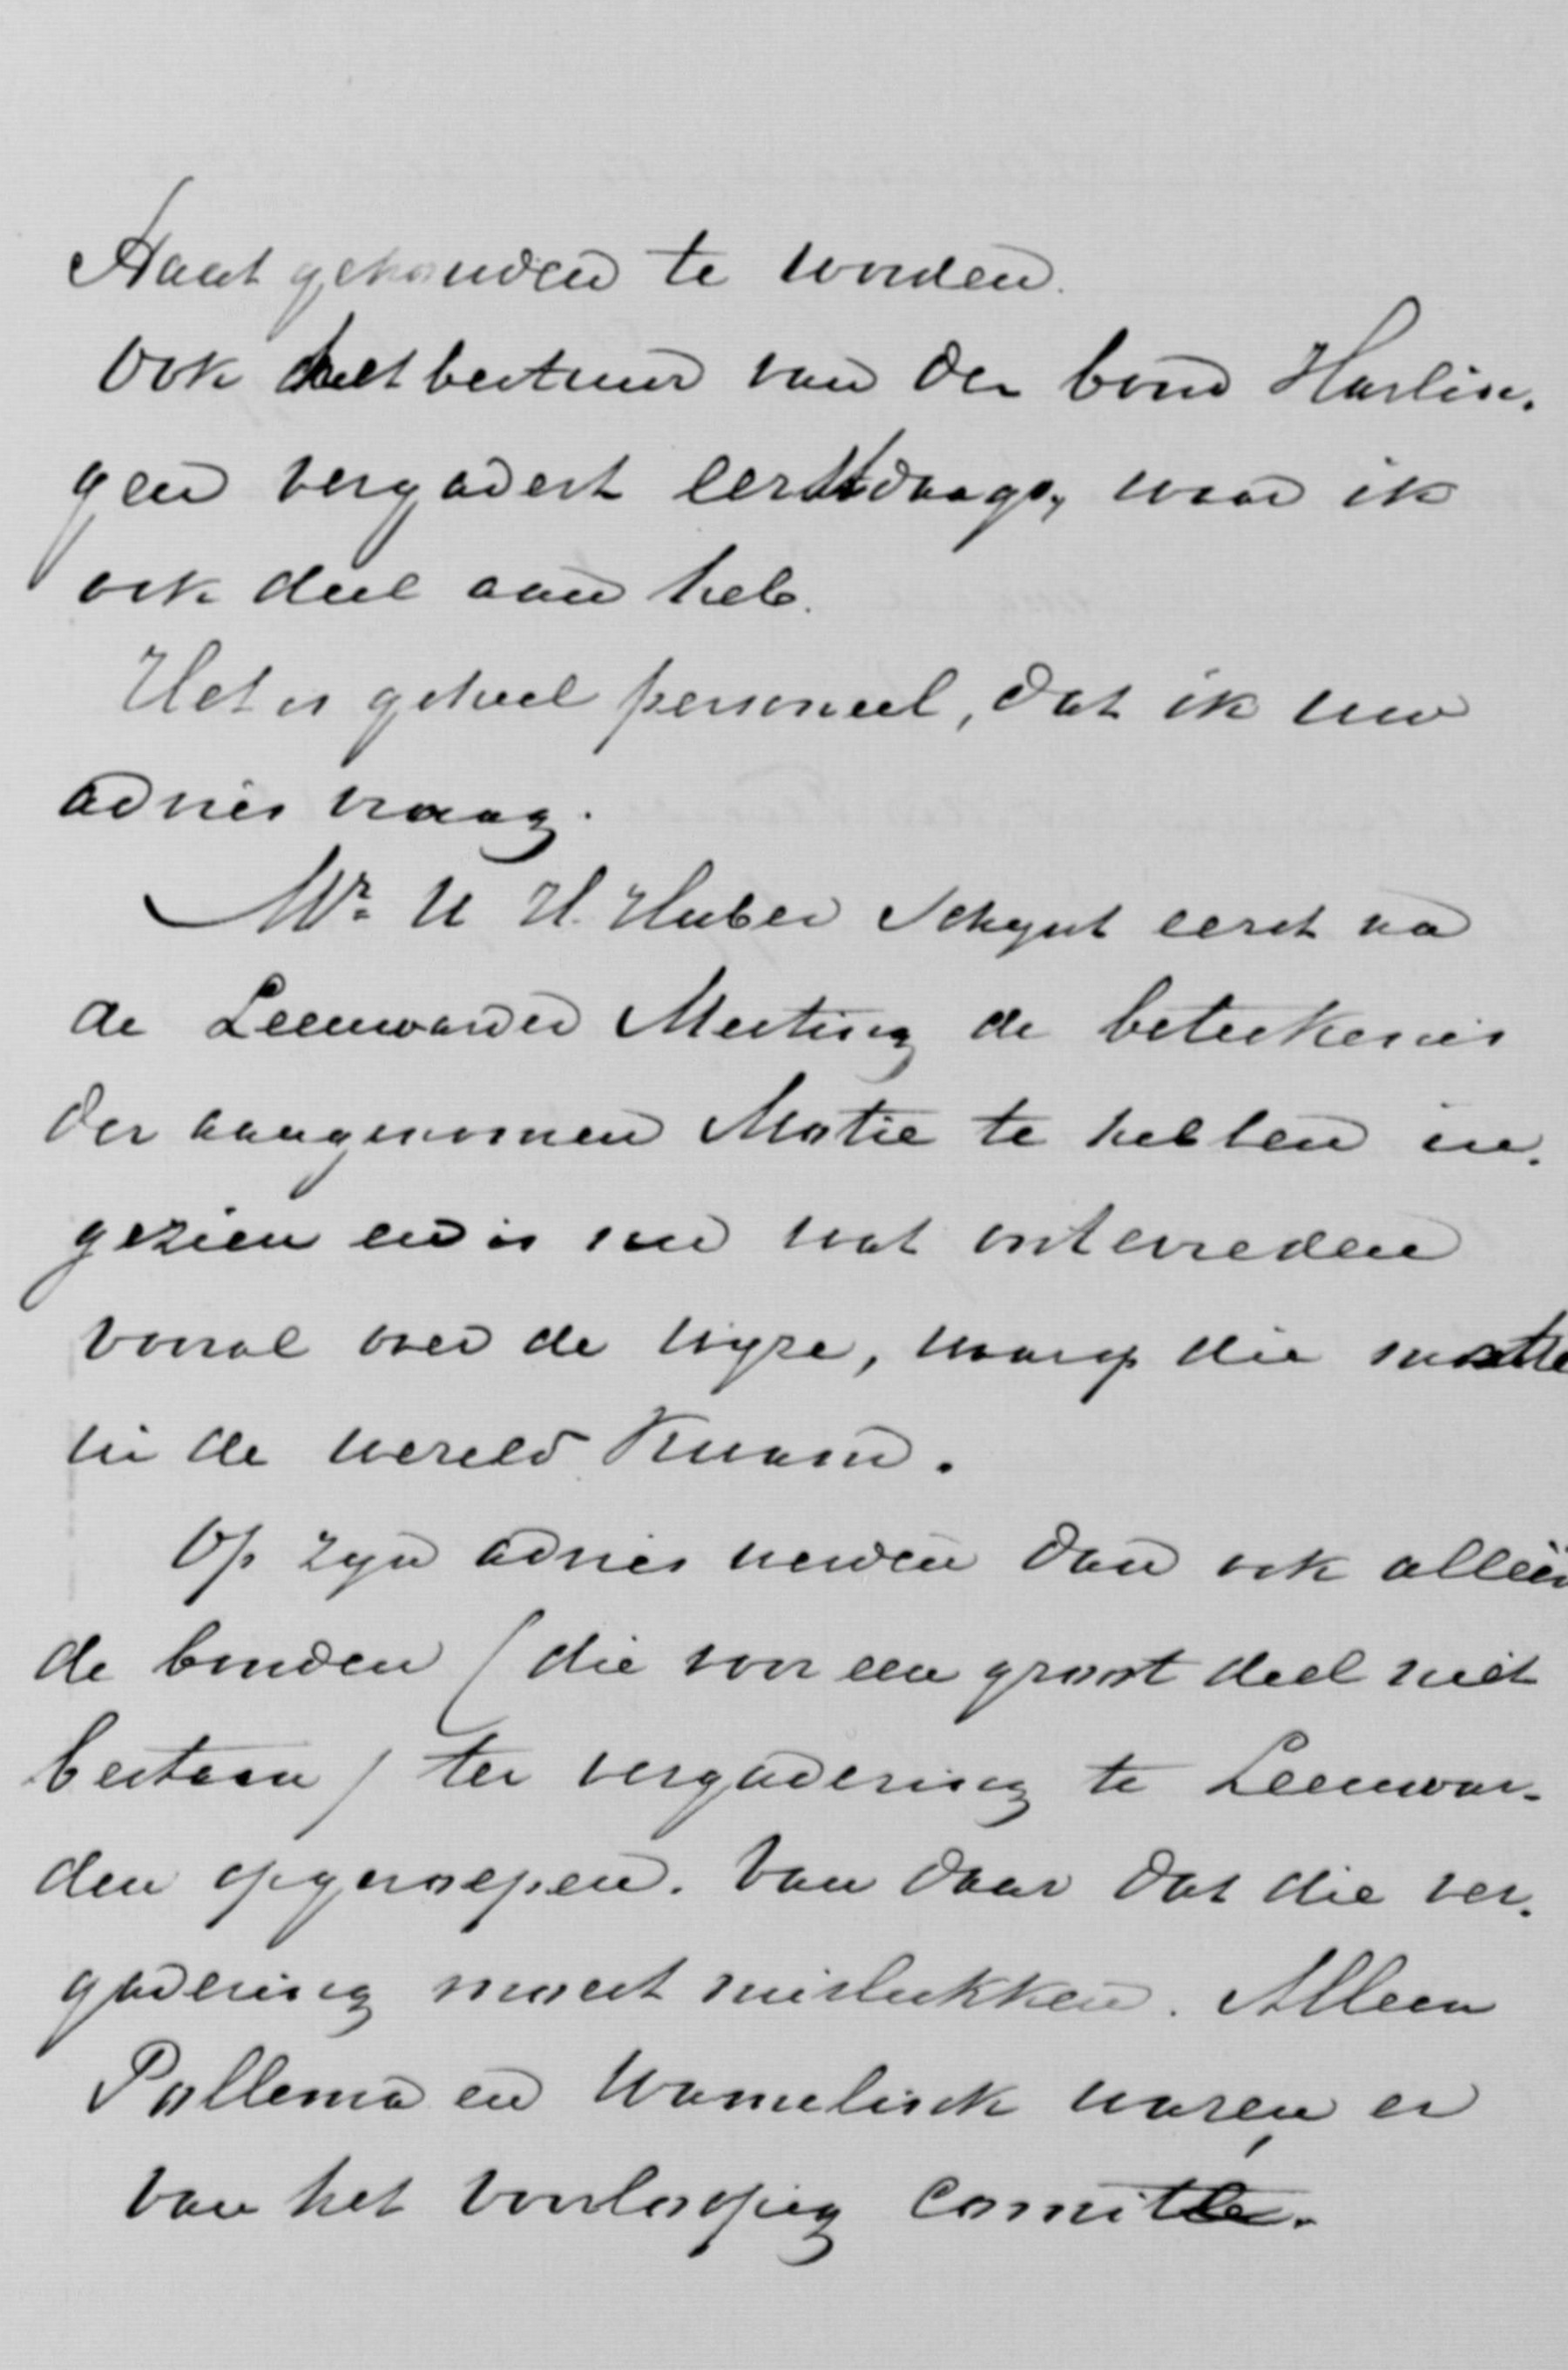 staat gehouden te worden.
Ook het bestuur van den bond Harlin-
gen vergadert eerstdaags, waar ik
ook deel aan heb.
Het is geheel personeel, dat ik uw
advies vraag.
Mr. U H. Huber schynt eerst na
de Leeuwarder Meeting de beteekenis
der aangenomen Motie te hebben in-
gezien en is nu wat ontevreden
vooral over de wyze, waarop die motie
in de wereld kwam.
Op zyn advies werden dan ook alléén
de bonden (die voor een groot deel niet
bestaan) ter vergadering te Leeuwar-
den opgeroepen. Van daar dat die ver-
gadering moest mislukken. Alleen
Pollema en Wamelinck waren er
van het voorloopig Comité.